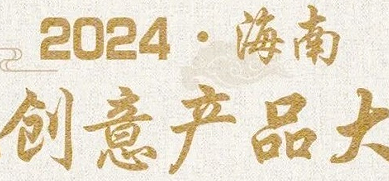 2024·海南
创意产品大